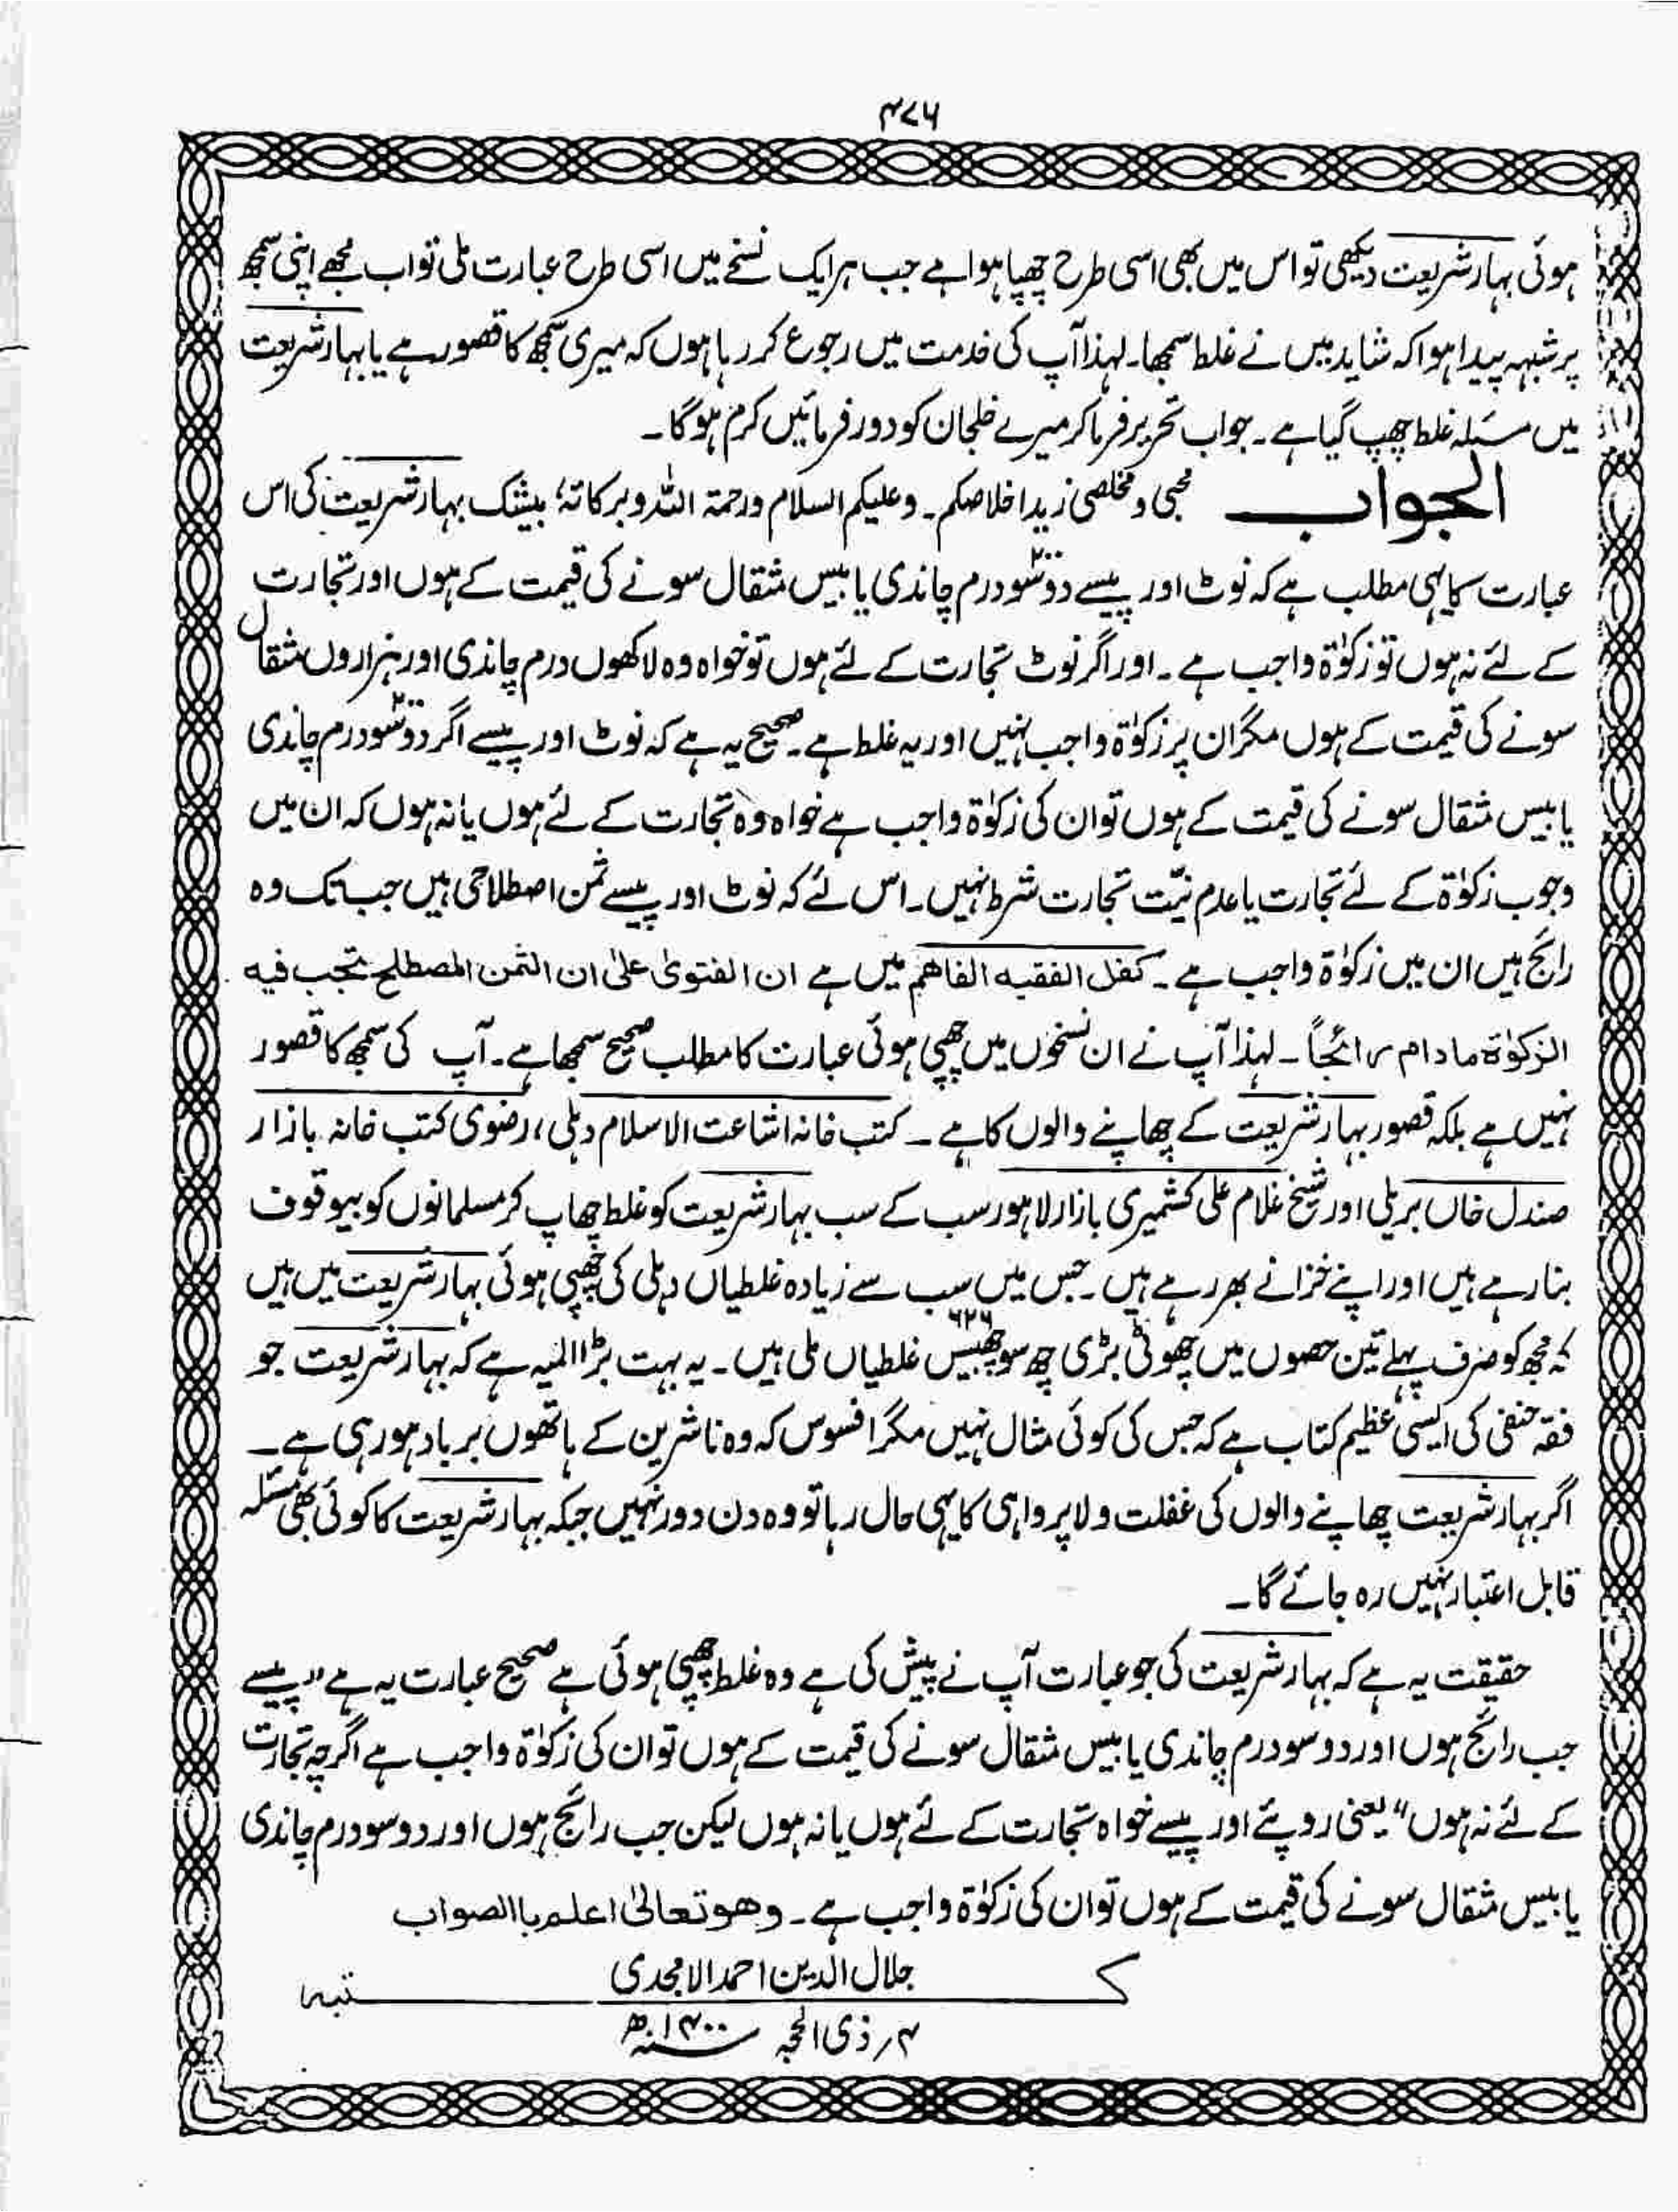 ۴۷۶
ہوئی بہار شریعت دیکھی تو اس میں بھی اسی طرح چھپا ہوا ہے جب ہر ایک نسخے میں اسی طرح عبارت ملی تو اب مجھے اپنی سمجھ
پر شبہہ پیدا ہوا کہ شاید میں نے غلط سمجھا۔ لہذا آپ کی خدمت میں رجوع کر رہا ہوں کہ میری سمجھ کا قصور ہے یا بہار شریعت
میں مسئلہ غلط چھپ گیا ہے۔ جواب تحریر فرما کر میرے خلجان کو دور فرمائیں کرم ہوگا۔
الجواب محبی و مخلصی زید اخلاصکم۔ وعلیکم السلام ورحمۃ اللہ وبرکاتہٗ بیشک بہار شریعت کی اس
عبارت کا یہی مطلب ہے کہ نوٹ اور پیسے دو سو ۲۰۰ درم چاندی یا بیس مثقال سونے کی قیمت کے ہوں اور تجارت
کے لئے نہ ہوں تو زکوٰۃ واجب ہے۔ اور اگر نوٹ تجارت کے لئے ہوں تو خواہ وہ لاکھوں درم چاندی اور ہزاروں مثقال
سونے کی قیمت کے ہوں مگر ان پر زکوٰۃ واجب نہیں اور یہ غلط ہے۔ صحیح یہ ہے کہ نوٹ اور پیسے اگر دو سو ۲۰۰ درم چاندی
یا بیس مثقال سونے کی قیمت کے ہوں تو ان کی زکوٰۃ واجب ہے خواہ وہ تجارت کے لئے ہوں یا نہ ہوں کہ ان میں
وجوب زکوٰۃ کے لئے تجارت یا عدم نیّت تجارت شرط نہیں۔ اس لئے کہ نوٹ اور پیسے ثمن اصطلاحی ہیں جب تک وہ
رائج ہیں ان میں زکوٰۃ واجب ہے۔ کفل الفقیہ الفاھم میں ہے ان الفتویٰ علیٰ ان الثمن المصطلح تجب فیہ
الزکوٰۃ مادام رائجاً۔ لہذا آپ نے ان نسخوں میں چھپی ہوئی عبارت کا مطلب صحیح سمجھا ہے۔ آپ کی سمجھ کا قصور
نہیں ہے بلکہ قصور بہار شریعت کے چھاپنے والوں کا ہے۔ کتب خانہ اشاعت الاسلام دہلی، رضوی کتب خانہ بازار
صندل خاں بریلی اور شیخ غلام علی کشمیری بازار لاہور سب کے سب بہار شریعت کو غلط چھاپ کر مسلمانوں کو بیوقوف
بنا رہے ہیں اور اپنے خزانے بھر رہے ہیں۔ جس میں سب سے زیادہ غلطیاں دہلی کی چھپی ہوئی بہار شریعت میں ہیں
کہ مجھ کو صرف پہلے تین حصوں میں چھوٹی بڑی چھ سو چھبیس ۶۲۶ غلطیاں ملی ہیں۔ یہ بہت بڑا المیہ ہے کہ بہار شریعت جو
فقہ حنفی کی ایسی عظیم کتاب ہے کہ جس کی کوئی مثال نہیں مگر افسوس کہ وہ ناشرین کے ہاتھوں برباد ہو رہی ہے۔
اگر بہار شریعت چھاپنے والوں کی غفلت و لاپرواہی کا یہی حال رہا تو وہ دن دور نہیں جبکہ بہار شریعت کا کوئی بھی مسئلہ
قابل اعتبار نہیں رہ جائے گا۔
حقیقت یہ ہے کہ بہار شریعت کی جو عبارت آپ نے پیش کی ہے وہ غلط چھپی ہوئی ہے صحیح عبارت یہ ہے "پیسے
جب رائج ہوں اور دو سو درم چاندی یا بیس مثقال سونے کی قیمت کے ہوں تو ان کی زکوٰۃ واجب ہے اگرچہ تجارت
کے لئے نہ ہوں" یعنی روپئے اور پیسے خواہ تجارت کے لئے ہوں یا نہ ہوں لیکن جب رائج ہوں اور دو سو درم چاندی
یا بیس مثقال سونے کی قیمت کے ہوں تو ان کی زکوٰۃ واجب ہے۔ وھو تعالیٰ اعلم باالصواب
کتبہ جلال الدین احمد الامجدی
۴؍ ذی الحجہ سنہ ۱۴۰۰ھ